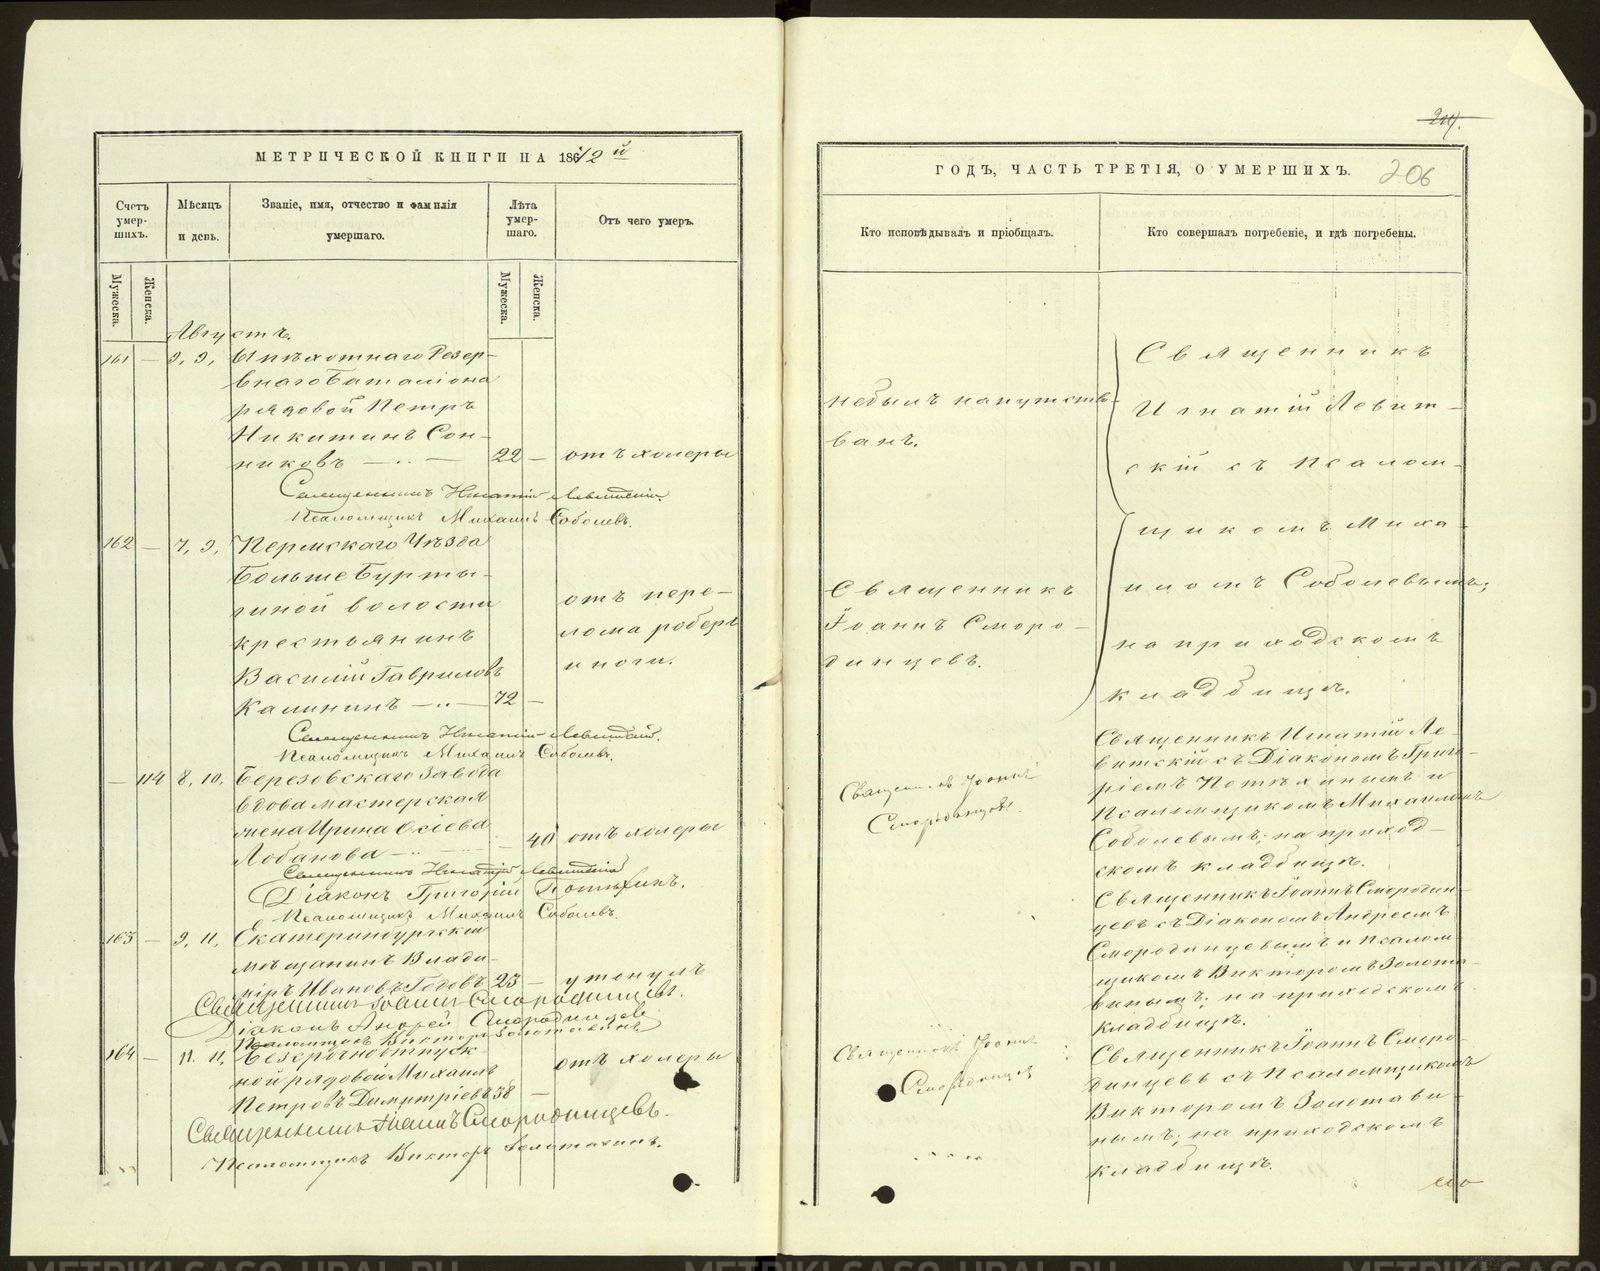 МЕТРИЧЕСКОЙ КНИГИ НА 1862й
Счетъ умер-шихъ.
Мѣсяцъ и день.
Званіе, имя, отчество и фамилія умершаго.
Лѣта умер-шаго.
Отъ чего умеръ.
Мужеска.
Женска.
Мужеска.
Женска.
Августъ.
161 — 9, 9,
пѣхотнаго Резер-
внаго Баталіона
рядовой Петръ
Никитинъ Сон-
никовъ — 22 — отъ холеры
Священникъ Игнатій Левитскій
Псаломщикъ Михаилъ Соболевъ.
162 — 7, 9, Пермскаго Уѣзда
Больше Бурты-
линой волости
крестьянинъ
Василій Гавриловъ
Калининъ — 72 —
отъ пере-
лома роберъ
и ноги.
Священникъ Игнатій Левитскій.
Псаломщикъ Михаилъ Соболевъ.
— 114 8, 10, Березовскаго Завода
вдова мастерская
жена Ирина Осіева
Лобанова — 40 отъ холеры
Священникъ Игнатій Левитскій
Діаконъ Григорій Потѣхинъ.
Псаломщикъ Михаилъ Соболевъ.
163 — 9, 11, Екатеринбургскій
мѣщанинъ Влади-
міръ Ивановъ Годовъ 23 — утонулъ
Священникъ Іоаннъ Смородинцевъ.
Діаконъ Андрей Смородинцевъ
Псаломщикъ Викторъ Золотавинъ
164 — 11. 11, Безсрочноотпуск-
ной рядовой Михаилъ
Петровъ Димитріевъ 38 — отъ холеры
Священникъ Іоаннъ Смородинцевъ.
Псаломщикъ Викторъ Золотавинъ.
214.
ГОДЪ, ЧАСТЬ ТРЕТІЯ, О УМЕРШИХЪ. 206
Кто исповѣдывалъ и пріобщалъ.
Кто совершалъ погребеніе, и гдѣ погребены.
небылъ напутство-
ванъ.
Священникъ
Игнатій Левит-
скій съ Псалом-
щикомъ Миха-
иломъ Соболевымъ;
на приходскомъ
кладбищѣ.
Священникъ
Іоаннъ Сморо-
динцевъ.
Священникъ Іоаннъ
Смородинцевъ.
Священникъ Игнатій Ле-
витскій съ Діакономъ Григо-
ріемъ Потѣхинымъ и
Псаломщикомъ Михаиломъ
Соболевымъ; на приход-
скомъ кладбищѣ.
Священникъ Іоаннъ Смородин-
цевъ съ Діакономъ Андреемъ
Смородинцевымъ и Псалом-
щикомъ Викторомъ Золота-
винымъ; на приходскомъ
кладбищѣ.
Священникъ Іоаннъ
Смородинцевъ
Священникъ Іоаннъ Сморо-
динцевъ съ Псаломщикомъ
Викторомъ Золотави-
нымъ; на приходскомъ
кладбищѣ.
METRIKI.GASO-URAL.RU